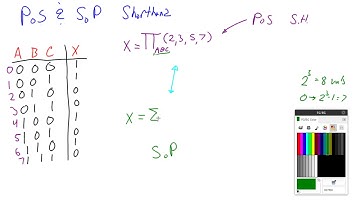 PoS & SoP Shorthand
A B C X
0 0 0 0 1
1 0 0 1 1
2 0 1 0 0
3 0 1 1 0
4 1 0 0 1
5 1 0 1 0
6 1 1 0 1
7 1 1 1 0
X = ∏ABC (2,3,5,7)
PoS S.H
X = Σ
SoP
2³ = 8 comb
0 → 2³-1 = 7